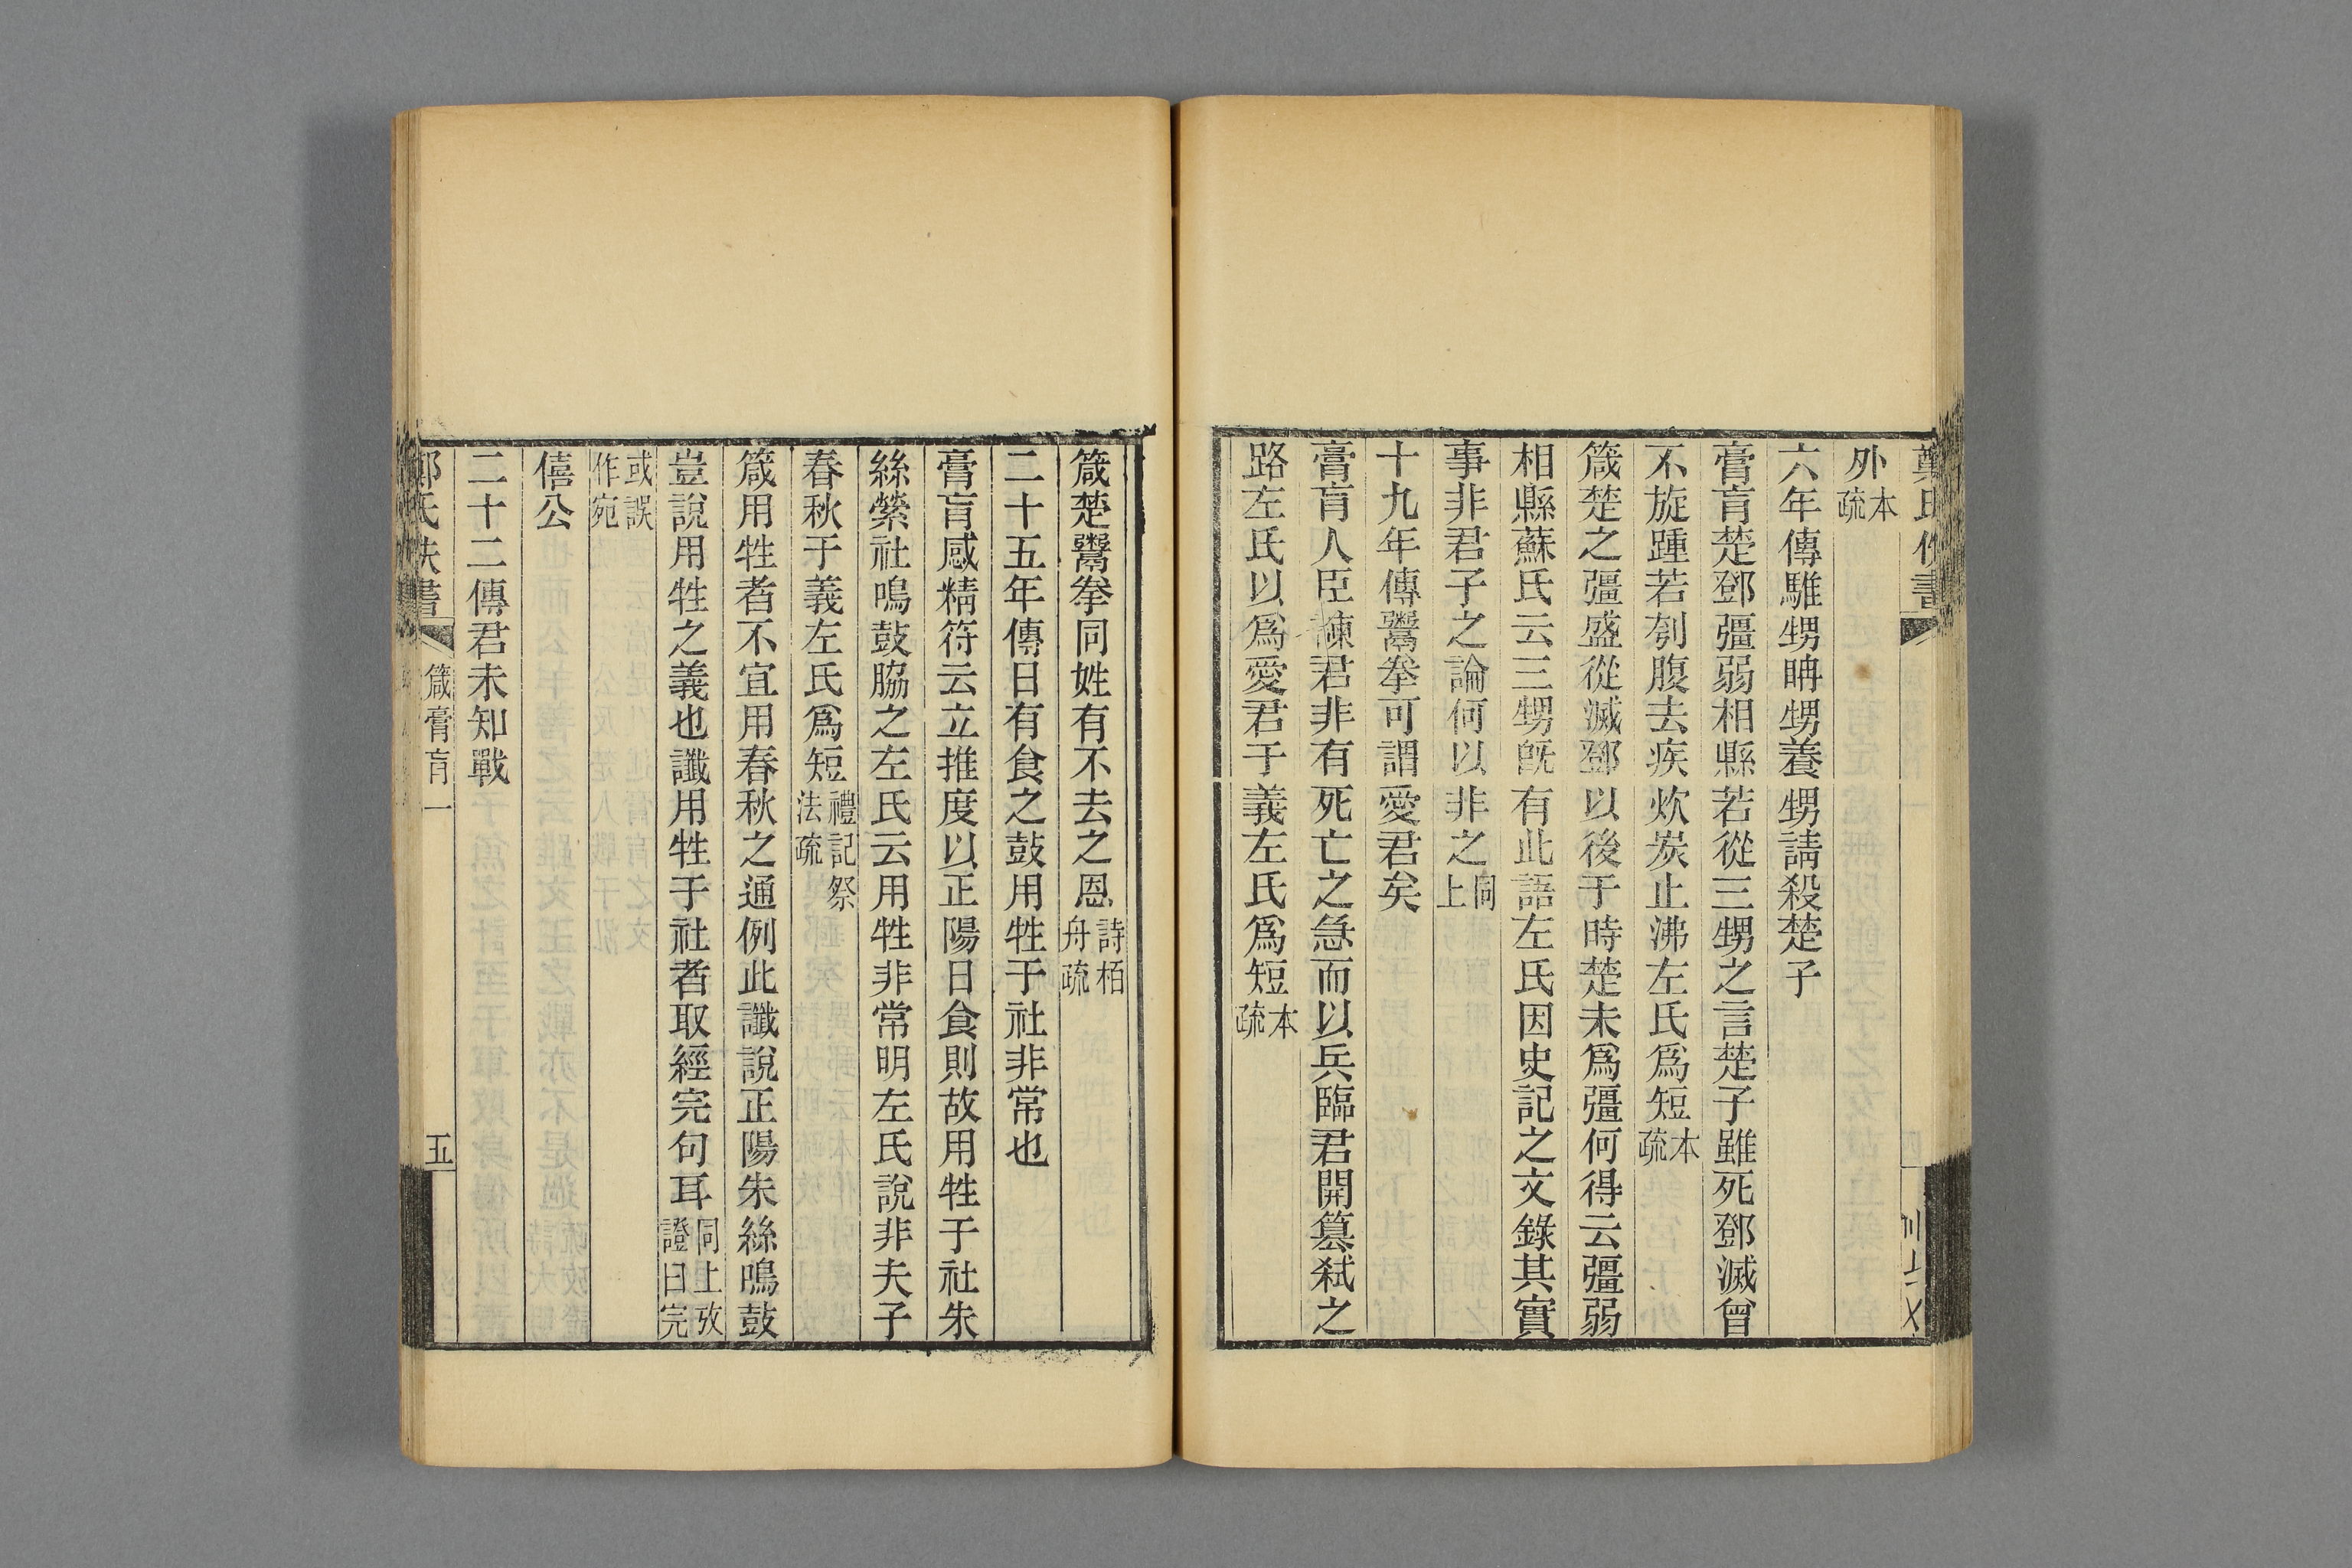 外本疏
六年傳騅甥聃甥養甥請殺楚子
膏肓楚鄧彊弱相縣若從三甥之言楚子雖死鄧滅曾
不旋踵若刳腹去疾炊炭止沸左氏爲短本疏
箴楚之彊盛從滅鄧以後于時楚未爲彊何得云彊弱
相縣蘇氏云三甥旣有此語左氏因史記之文錄其實
事非君子之論何以非之同上
十九年傳鬻拳可謂愛君矣
膏肓人臣諫君非有死亡之急而以兵臨君開篡弑之
路左氏以爲愛君于義左氏爲短本疏
箴楚鬻拳同姓有不去之恩詩栢舟疏
二十五年傳日有食之鼓用牲于社非常也
膏肓感精符云立推度以正陽日食則故用牲于社朱
絲縈社鳴鼓脇之左氏云用牲非常明左氏說非夫子
春秋于義左氏爲短禮記祭法疏
箴用牲者不宜用春秋之通例此讖說正陽朱絲鳴鼓
豈說用牲之義也讖用牲于社者取經完句耳同上攷證曰完
或誤作宛
僖公
二十二傳君未知戰
箴膏肓一 五